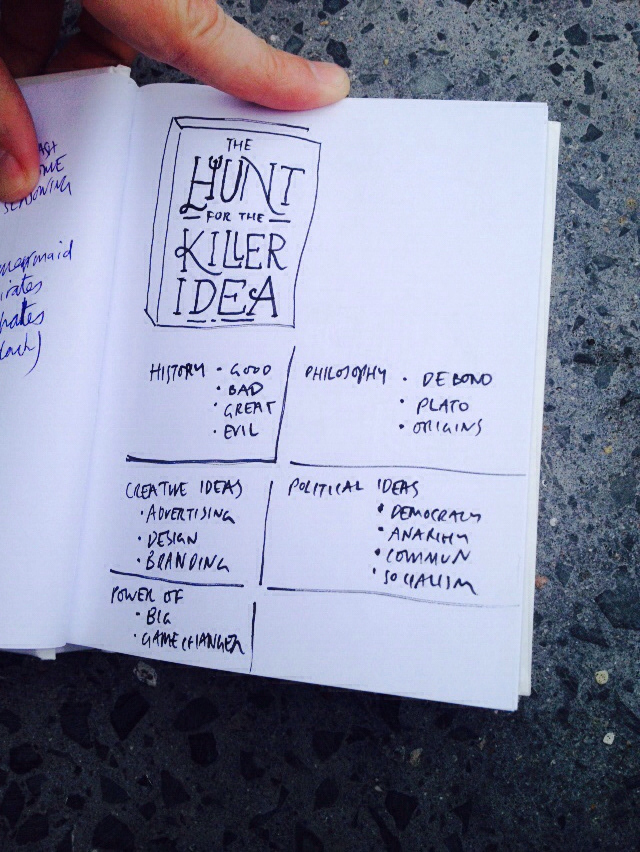 SEASONING
mermaid
THE
HUNT
FOR THE
KILLER
IDEA
HISTORY • GOOD
• BAD
• GREAT
• EVIL
PHILOSOPHY • DEBONO
• PLATO
• ORIGINS
CREATIVE IDEAS
• ADVERTISING
• DESIGN
• BRANDING
POLITICAL IDEAS
• DEMOCRACY
• ANARCHY
• COMMUN
• SOCIALISM
POWER OF
• BIG
• GAMECHANGER